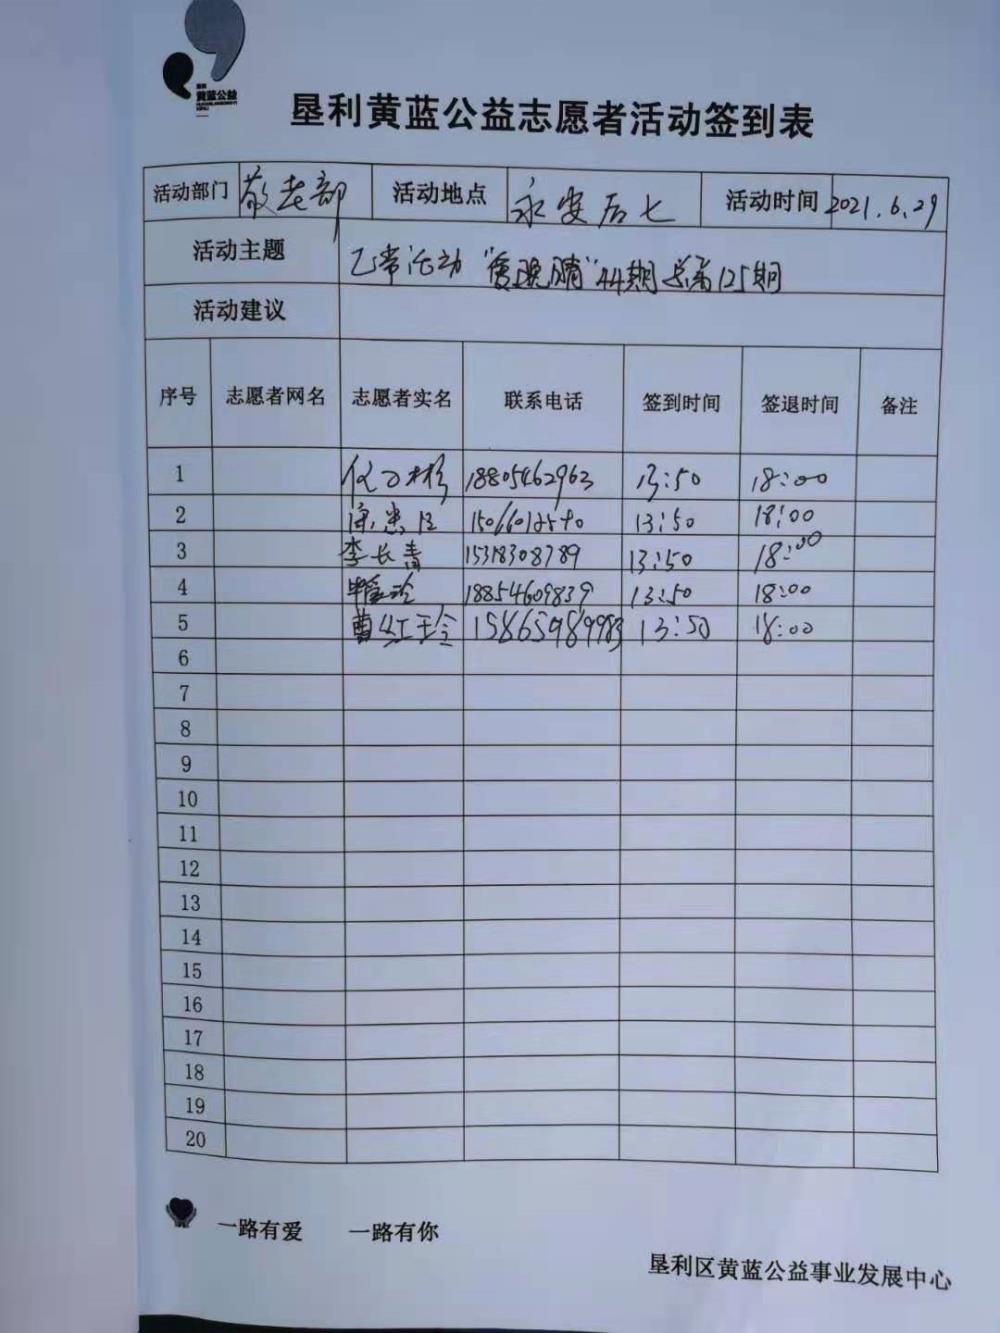 黄蓝公益
垦利黄蓝公益志愿者活动签到表
活动部门 敬老部 活动地点 永安后七 活动时间 2021.6.29
活动主题 活动 晚晴"44期 125期
活动建议
序号 志愿者网名 志愿者实名 联系电话 签到时间 签退时间 备注
1 18805462963 13:50 18:00
2 13:50 18:00
3 李长青 15318308789 13:50 18:00
4 18854609839 13:50 18:00
5 曹红玲 15865989983 13:50 18:00
6
7
8
9
10
11
12
13
14
15
16
17
18
19
20
一路有爱 一路有你
垦利区黄蓝公益事业发展中心